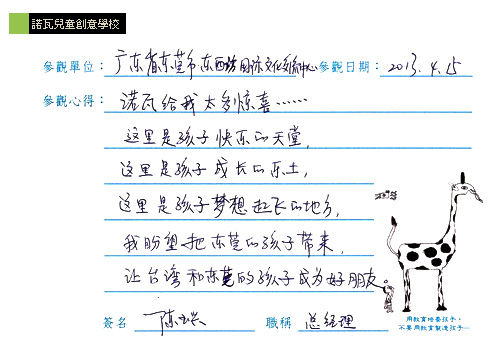 諾瓦兒童創意學校
參觀單位：广东省东莞市东西坊国际文化交流中心 參觀日期：2013.4.25
參觀心得：诺瓦给我太多惊喜……
这里是孩子快乐的天堂，
这里是孩子成长的乐土，
这里是孩子梦想起飞的地方，
我盼望把东莞的孩子带来，
让台湾和东莞的孩子成为好朋友
簽名 陈 職稱 总经理
用教育培養孩子，
不要用教育製造孩子…